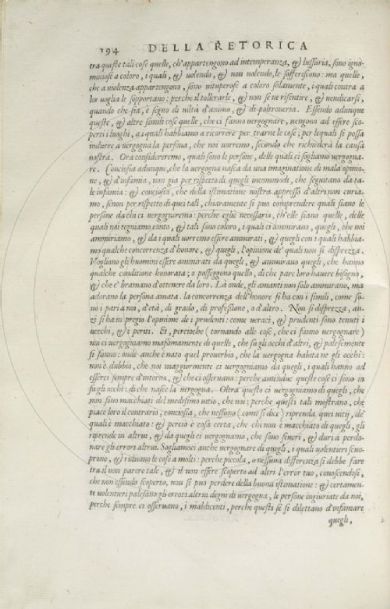 194 DELLA RETORICA
tra queste tali cose quelle, ch'appartengono ad intemperanza, & lussuria, sono igno-
miniose a coloro, i quali, & volendo, & non volendo, le sofferiscono: ma quelle,
che a violenza appartengono, sono vituperose a coloro solamente, i quali contra a
lor voglia le sopportano; perche il tollerarle, & non se ne risentire, & vendicarsi,
quando che sia, è segno di viltà d'animo, & di poltroneria. Essendo adunque
queste, & altre simili cose quelle, che ci fanno vergognare, vengono ad essere sco-
perti i luoghi, a i quali habbiamo a ricorrere per trarne le cose; per le quali si possa
indurre a vergogna la persona, che noi vorremo, secondo che richiederà la causa
nostra. Ora consideremo, quali sono le persone, delle quali ci sogliamo vergogna-
re. Conciosia adunque, che la vergogna nasca da una imaginatione di mala opinio-
ne, & d'infamia, non già per rispetto di quegli incommodi, che seguitano da ta-
le infamia: & conciosia, che della istimatione nostra appresso d'altri non curia-
mo, senon per rispetto di que tali, chiaramente si può comprendere quali siano le
persone da chi ci vergogneremo: perche egli è necessario, ch'elle siano quelle, delle
quali noi tegnamo conto, & tali sono coloro, i quali ci ammirano, quegli, che noi
ammiriamo, & da i quali vorremo essere ammirati, & quegli con i quali habbia-
mo qualche concorrenza d'honore, & quegli, l'opinioni de' quali non si disprezza.
Vogliano gli huomini essere ammirati da quegli, & ammirano quegli, che hanno
qualche conditione honorata; o posseggono quello, di che pare loro havere bisogno,
& che e' bramano d'ottenere da loro. Là onde, gli amanti non solo ammirano, ma
adorano la persona amata. la concorrenza dell'honore si ha con i simili, come so-
no i pari a noi, d'età, di grado, di professione, o d'altro. Non si disprezza, an-
zi si ha in pregio l'opinione de i prudenti: come veraci, & prudenti sono tenuti i
vecchi, & i periti. Et, percioche (tornando alle cose, che ci fanno vergognare)
noi ci vergogniamo massimamente di quelle, che su gli occhi d'altri, & palesemente
si fanno: onde anche è nato quel proverbio, che la vergogna habita ne gli occhi:
non è dubbio, che noi maggiormente ci vergogniamo da quegli, i quali hanno ad
esserci sempre d'intorno, & che ci osservano: perche amendue queste cose ci sono in
su gli occhi: di che nasce la vergogna. Oltra questo ci vergogniamo di quegli, che
non sono macchiati del medesimo vitio, che noi: perche questi tali mostrano, che
piace loro il contrario; conciosia, che nessuno (come si dice) riprenda quei vitij, de'
quali è macchiato: & perciò è cosa certa, che chi non è macchiato di quegli, gli
riprende in altrui, & da quegli ci vergogniamo, che sono severi, & duri a perdo-
nare gli errori altrui. Sogliamoci anche vergognare di quegli, i quali volentieri scuo-
prono, & ridicono le cose a molti: perche piccola, o nessuna differenza si debbe fare
tra il non parere tale, & il non essere scoperto ad altri l'error tuo, conoscendosi,
che non essendo scoperto, non si può perdere della buona istimatione: & certamen-
te volentieri palesano gli errori altrui degni di vergogna, le persone ingiuriate da noi,
perche sempre ci osservano, i maldicenti, perche questi se si dilettano d'infamare
quegli,